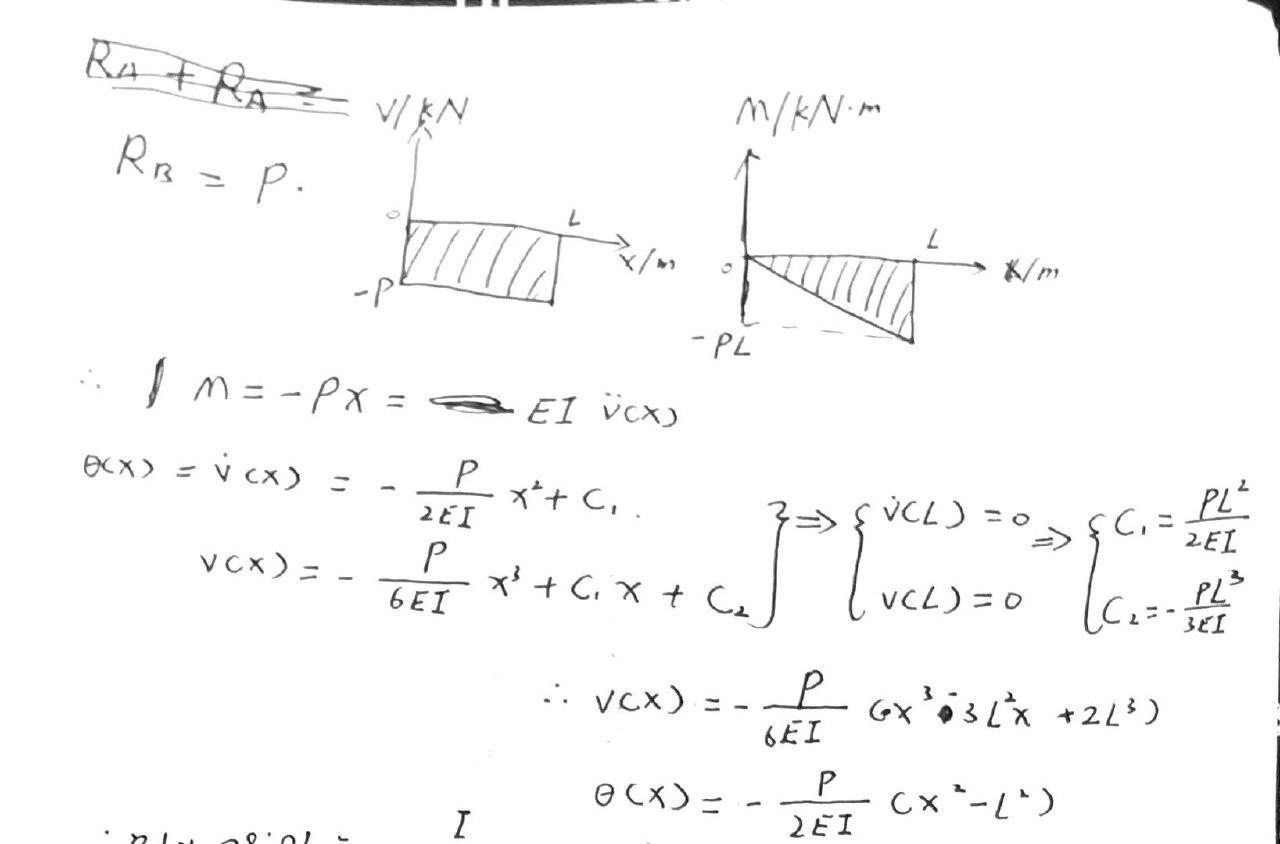 R_A + R_A =
R_B = P.
V/kN
0
L
x/m
-P
M/kN·m
0
L
x/m
-PL
∴ M = -Px = EI v̈(x)
θ(x) = v̇(x) = - P/2EI x² + C₁.
v(x) = - P/6EI x³ + C₁x + C₂ } ⇒ { v̇(L) = 0 v(L) = 0 ⇒ { C₁ = PL²/2EI C₂ = - PL³/3EI
∴ v(x) = - P/6EI (x³ - 3L²x + 2L³)
θ(x) = - P/2EI (x² - L²)
I